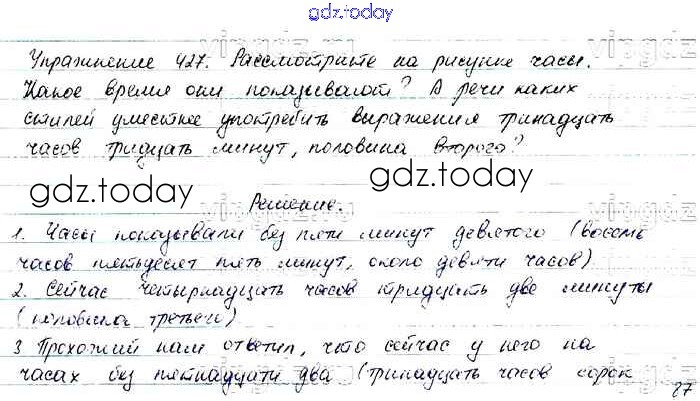 gdz.today
Упражнение 427. Рассмотрите на рисунке часы.
Какое время они показывают? В речи каких
стилей уместнее употребить выражения тринадцать
часов тридцать минут, половина второго?
gdz.today gdz.today
Решение.
1. Часы показывали без пяти минут девятого (восемь
часов пятьдесят пять минут, около девяти часов)
2. Сейчас четырнадцать часов тридцать две минуты
(половина третьего)
3 Прохожий нам ответил, что сейчас у него на
часах без пятнадцати два (тринадцать часов сорок
87